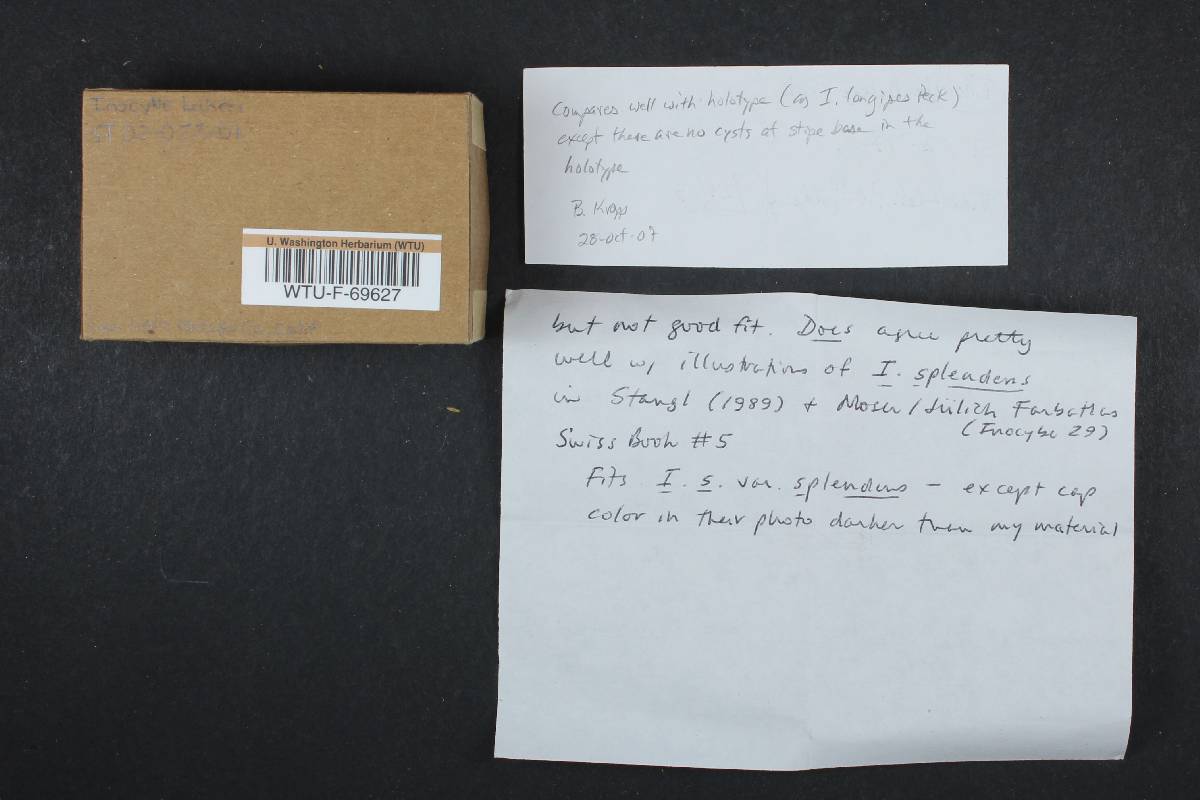 Inocybe
U. Washington Herbarium (WTU)
WTU-F-69627
Compares well with holotype (as I. longipes Peck)
except there are no cysts at stipe base in the
holotype
B. Kropp
28-oct-07
but not good fit. Does agree pretty
well w/ illustrations of I. splendens
in Stangl (1989) + Moser/Jülich Farbatlas
(Inocybe 29)
Swiss Book #5
Fits I. s. var. splendens - except cap
color in their photo darker than my material